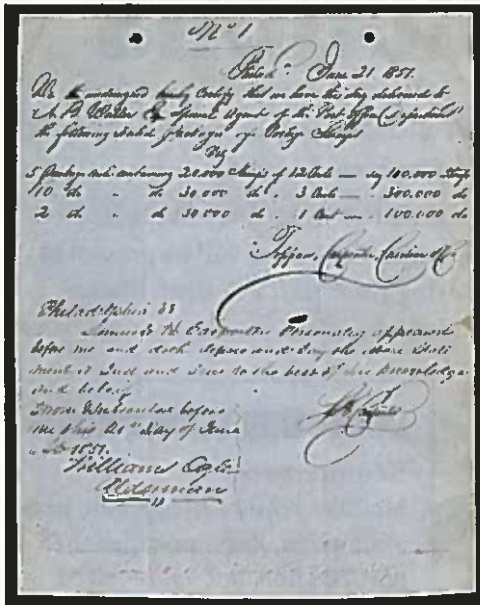 No 1
Philada. June 21 1851.
We the undersigned hereby Certify that we have this day delivered to
A. B. Special Agent of the Post Office Department
the following sealed packages of Postage Stamps
Viz
5 Package each containing 20.000 Stamps of 12 Cents — say 100.000 Stamps
10 do " do 30.000 do " 3 Cents — " 300.000 do
2 do " do 50.000 do " 1 Cent — " 100.000 do
Toppan, Carpenter, Casilear & Co
Philadelphia SS
Samuel H Carpenter Personally appeared
before me and doth depose and say the above State
ment is Just and True to the best of his Knowledge
and belief
Sworn & Subscribed before
me this 21st Day of June
1851.
William
Alderman